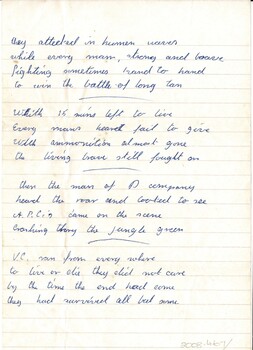 they attacked in human waves
while every man, strong and brave
fighting sometimes hand to hand
to win the battle of long tan
With 15 mins left to live
Every mans heard fail to give
With ammunition almost gone
the living brave still fought on
then the man of D company
heard the roar and looked to see
A.P.C.s came on the scene
Crashing throug the jungle green
V.C. ran from every where
to live or die they did not care
by the time the end had come
they had survived all but some